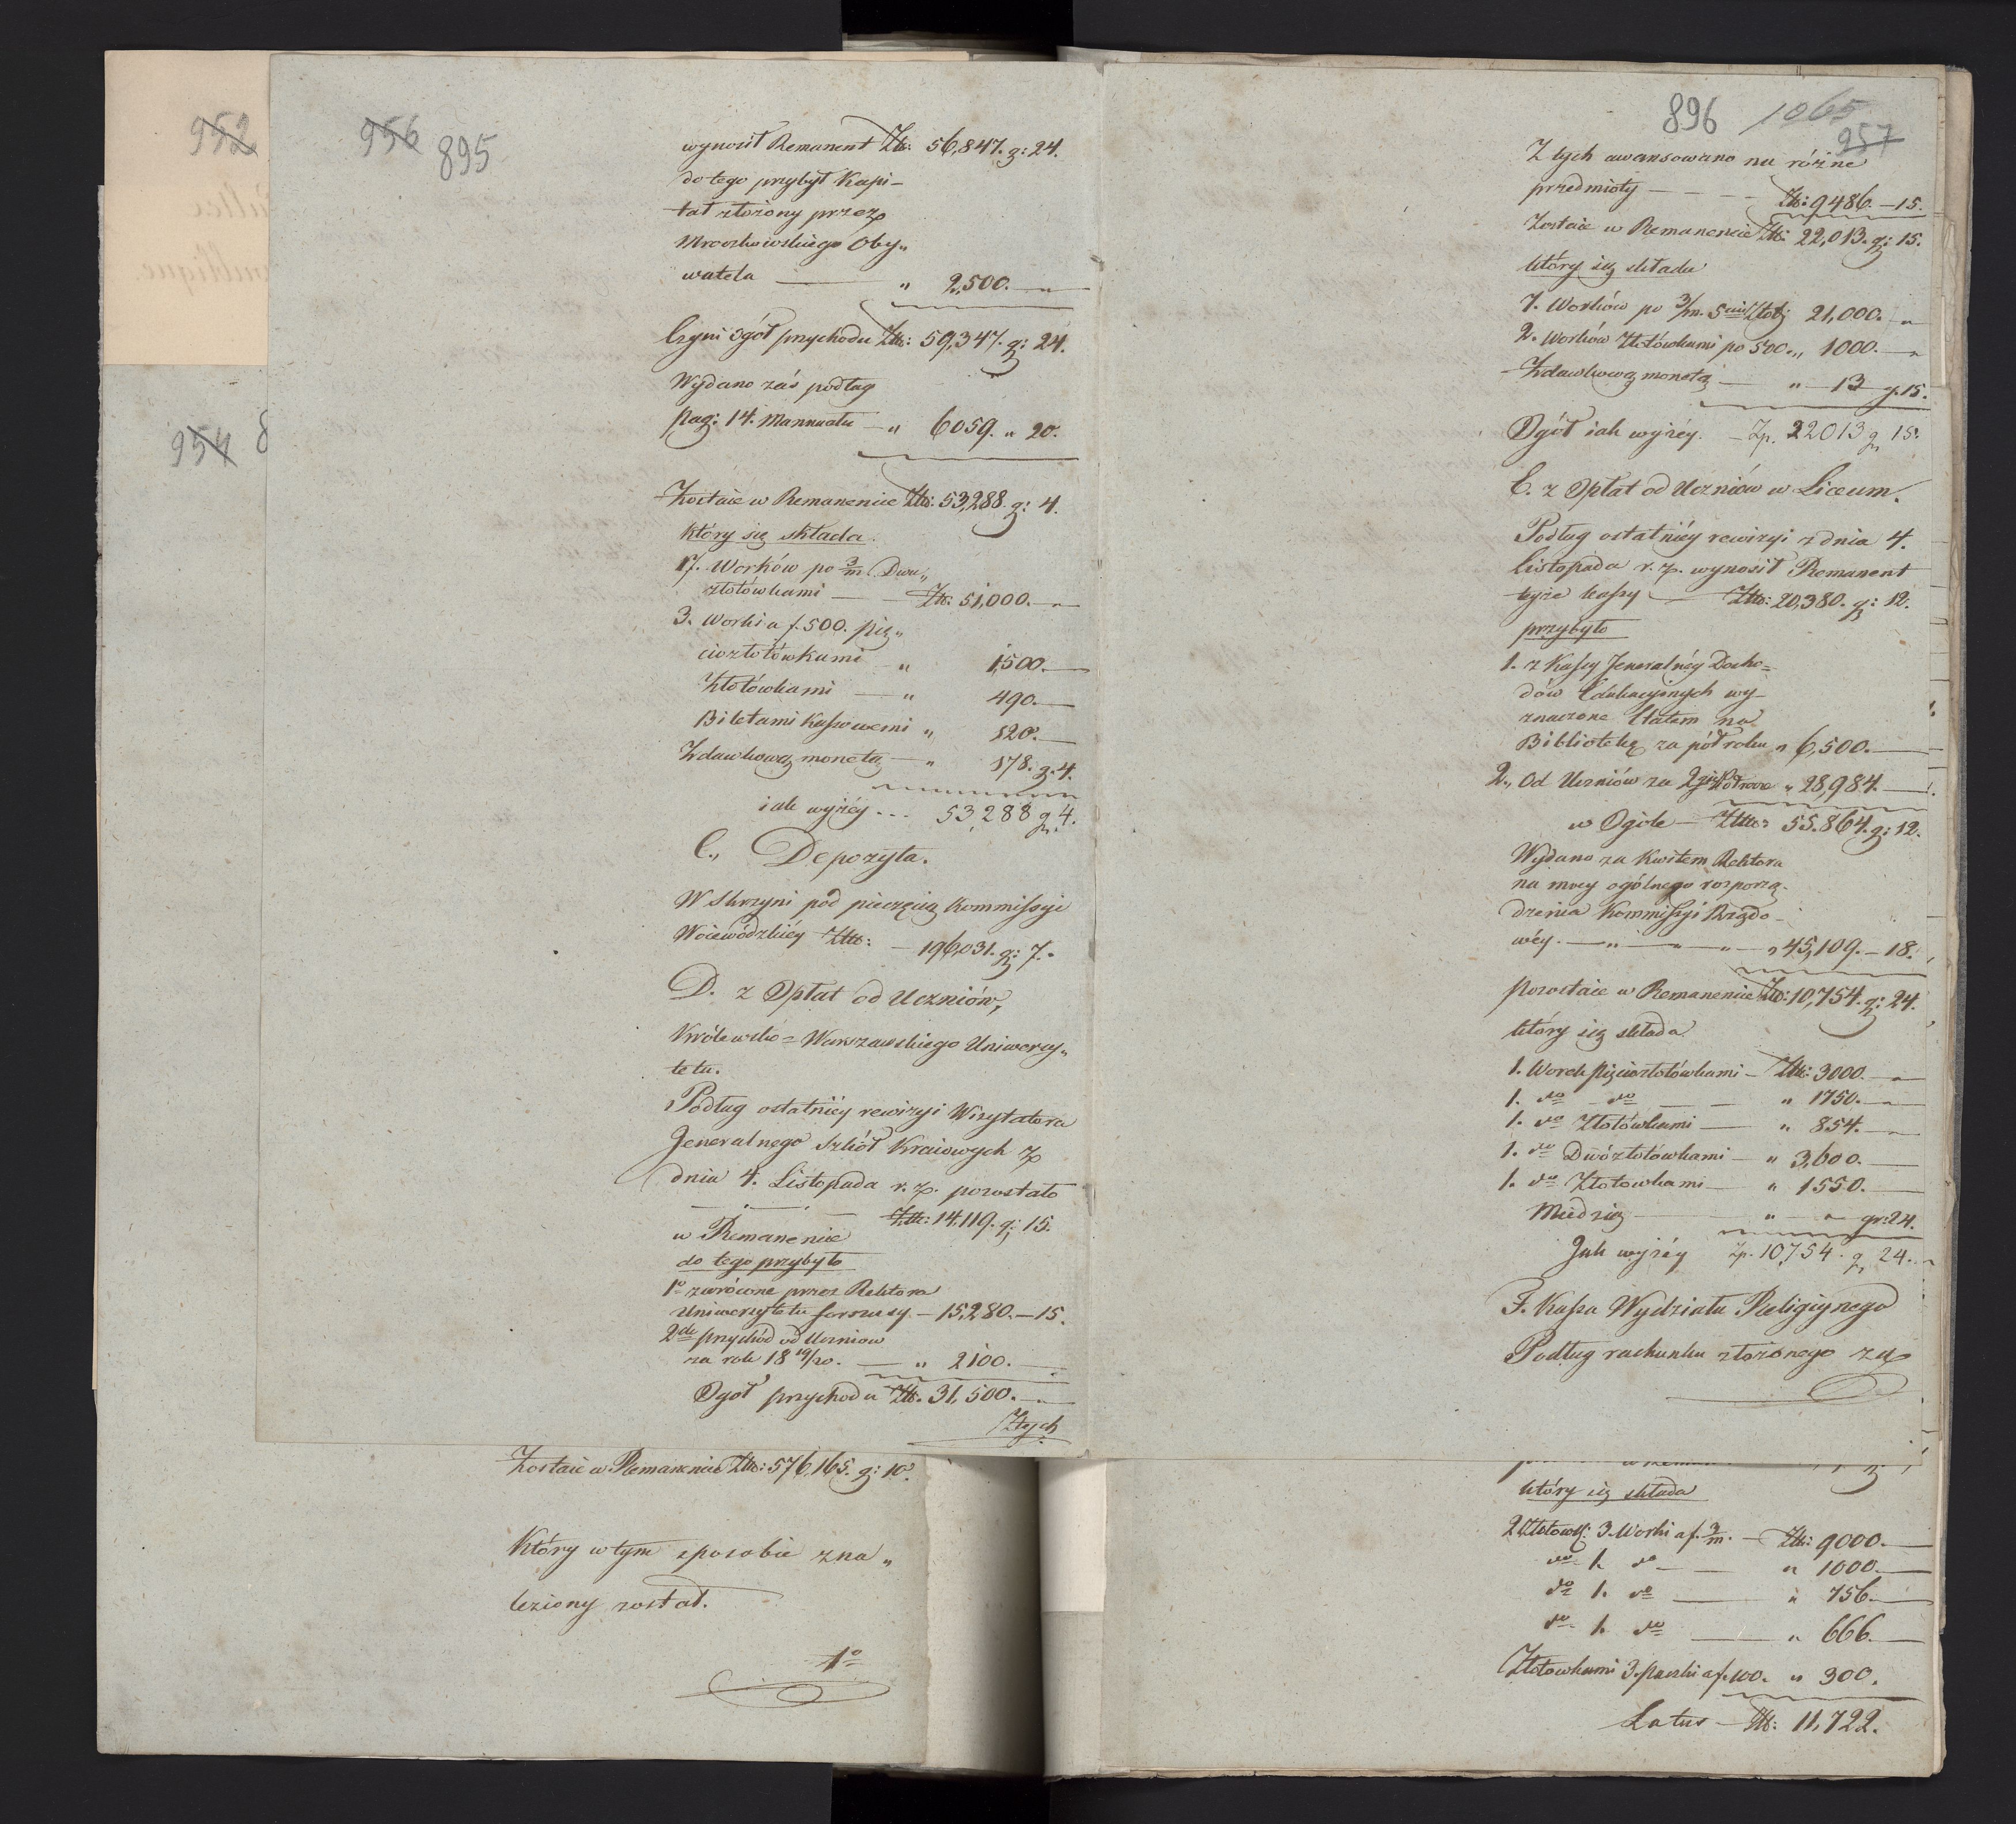 952
954 8
956 895
wynosił Remanent Złł: 56,847. g: 24.
do tego przybył Kapi-
tał złożony przez
Mroczkowskiego Oby„
watela — „ 2,500. — „
Czyni ogół przychodu Złł: 59,347. g: 24.
Wydano zaś podług
pag: 14. Mannuału — „ 6059. „ 20.
Zostaie w Remanencie Złł: 53,288. g: 4.
który się składa.
17. Worków po 3/m Dwu„
złotówkami — Złł: 51,000. — „
3. Worki a f. 500. pię„
ciozłotówkami „ 1,500. —
Złotówkami — „ 490. —
Biletami Kassowemi „ 120. —
Zdawkową monetą — „ 178. g. 4.
iak wyżéy ... 53,288 g 4.
C., Depozyta.
W Skrzyni pod pieczęcią Kommissyi
Woiewódzkiéy Złł: — 196,031. g: 7. „
D. z Opłat od Uczniów,
Królewsko = Warszawskiego Uniwersy„
tetu.
Podług ostatniéy rewizyi Wizytatora
Jeneralnego Szkół Kraiowych z
dnia 4. Listopada r. z. pozostało
w Remanencie — Złł: 14,119. g: 15.
do tego przybyło
1o zwrócone przez Rektora
Uniwersytetu forszusy — 15,280. — 15.
2do przychód od Uczniow
za rok 18 19/20. — „ 2100. —
Ogół przychodu Złł. 31,500. — „
Z tych
Zostaie w Remanencie Złł: 576,165. g: 10.
Który w tym sposobie zna„
leziony został.
1o
896 1065
957
Z tych awansowano na różne
przedmioty — — — Złł: 9486. — 15.
Zostaie w Remanencie Złł: 22,013. g: 15.
który się składa
7. Worków po 3/m. 5cio Złotj 21,000. — „
2. Worków Złotówkami po 500. „ 1000. — „
Zdawkową monetą — „ — 13 g. 15.
Ogół iak wyżéy. — Zp. 22013 g 15.
E. z Opłat od Uczniów w Liceum.
Podług ostatniéy rewizyi z dnia 4.
Listopada r. z. wynosił Remanent
tejże kassy — Złł: 20,380. g: 12.
przybyło
1. z Kassy Jeneralnéy Docho=
dów Edukacyjnych wy-
znaczone Etatem na
Bibliotekę za półroku „ 6,500. —
2., Od Uczniów za 2gie Półrocze „ 28,984. —
w Ogóle — Złł: 55.864. g: 12.
Wydano za Kwitem Rektora
na mocy ogólnego rozporzą-
dzenia Kommissyi Rządo-
wéy. — „ — „ — „ 45,109. — 18.
Pozostaie w Remanencie Złł: 10,754. g: 24.
który się składa
1. Worek Pięciozłotówkami — Złł: 3000. — „
1. do — do — „ 1750. — „
1. do Złotówkami — „ 854. — „
1. do Dwózłotówkami — „ 3,600. —
1. do Złotówkami — „ 1550. —
Miedzią — „ — „ gr: 24.
Jak wyżéy Zp. 10,754. g 24. „
F. Kassa Wydziału Religiynego
Podług rachunku złożonego za
który się składa
2 Złotowk: 3. Worki a f. 3/m. — Złł: 9000. —
do 1. do — „ 1000. —
do 1. do — „ 756. —
do 1. do — „ 666. —
Złotowkami 3. paczki a f. 100. „ 300.
Latus — Złł: 11,722.